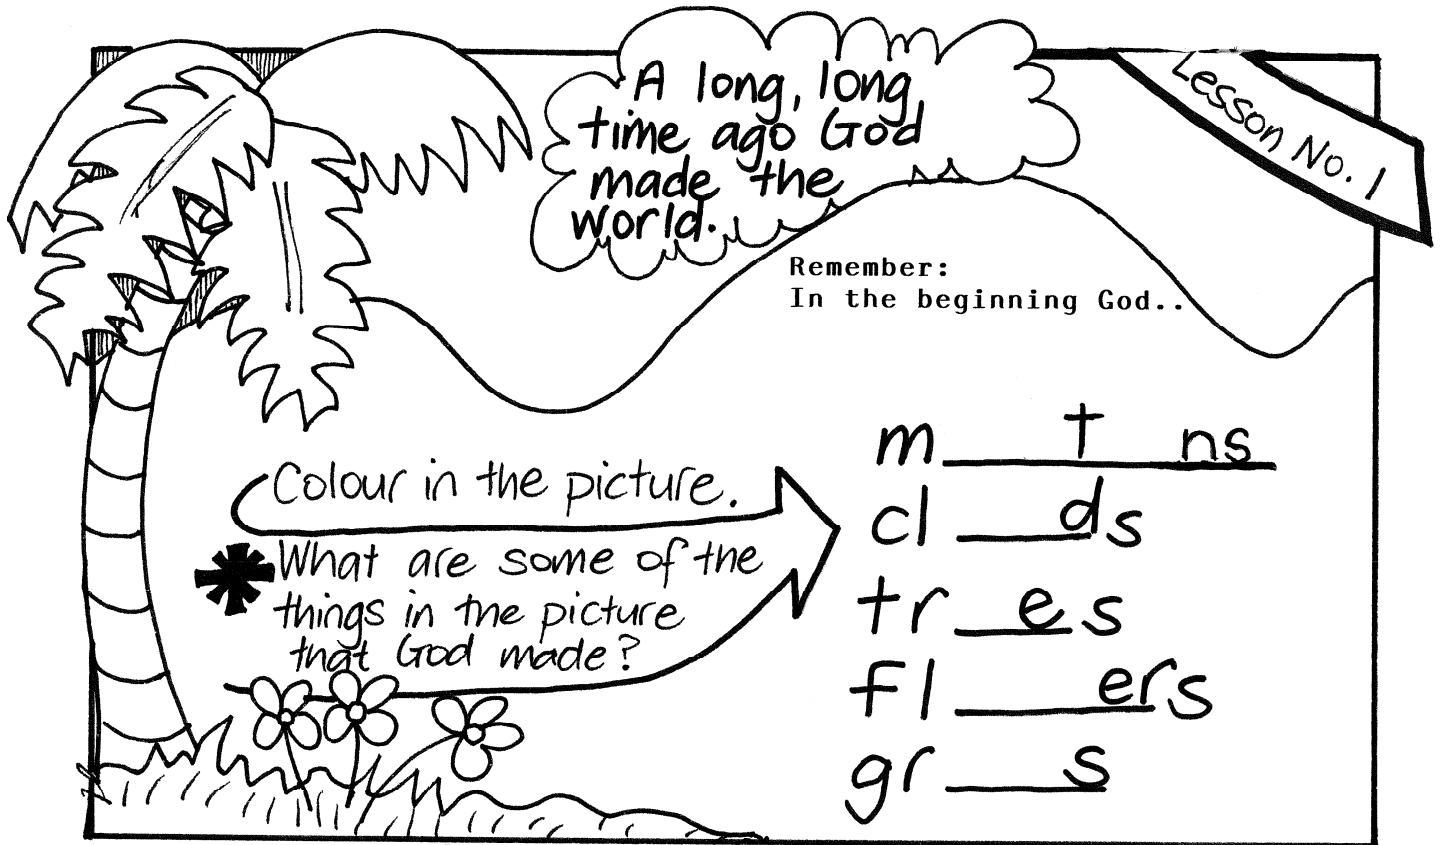 A long, long
time ago God
made the
world.
Lesson No. 1
Remember:
In the beginning God..
Colour in the picture.
What are some of the
things in the picture
that God made?
m ____ t __ ns
cl ____ ds
tr __ e s
fl ____ ers
gr ___ s